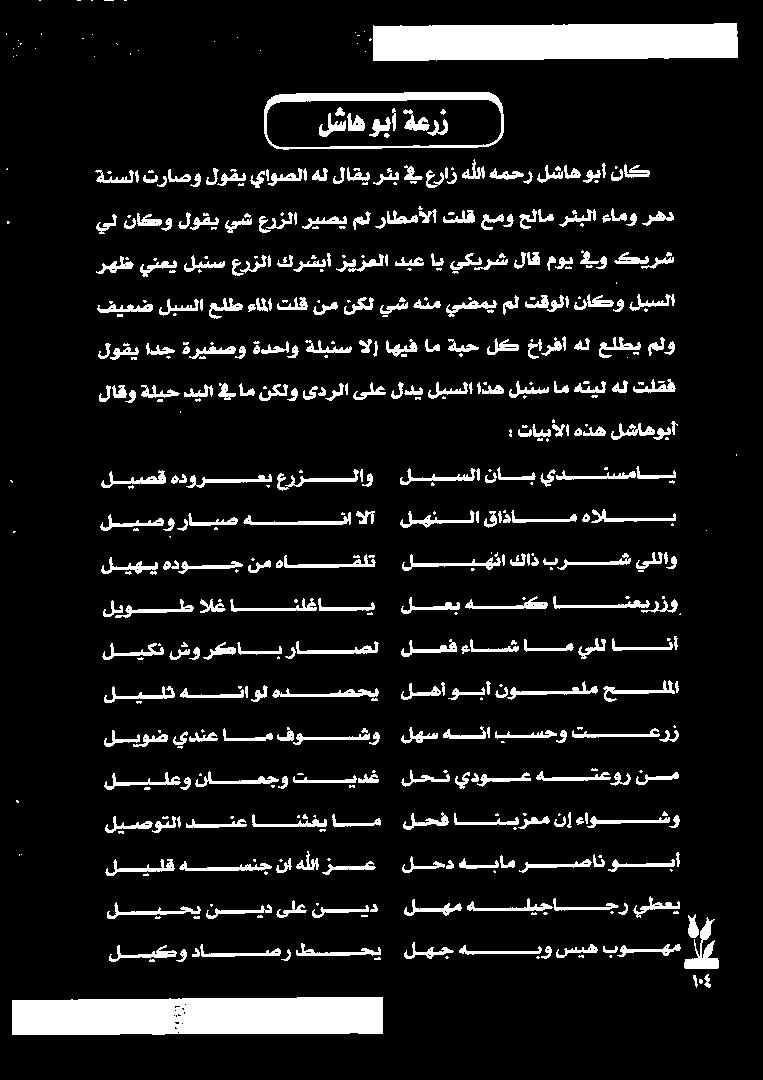 زرعة أبو هاشل
كان أبو هاشل رحمه الله زارع في بئر يقال له الصواي يقول وصارت السنة
دهر وماء البئر مالح ومع قلت ألأمطار لم يصير الزرع شي يقول وكان لي
شريك وفي يوم قال شريكي يا عبد العزيز أبشرك الزرع سنبل يعني ظهر
السبل وكان الوقت لم يمضي منه شي لكن من قلت الماء طلع السبل ضعيف
ولم يطلع له أفراخ كل حبة ما فيها إلا سنبلة واحدة وصغيرة جدا يقول
فقلت له ليته ما سنبل هذا السبل يدل على الردى ولكن ما في اليد حيلة وقال
أبوهاشل هذه الأبيات :
يامسندي بان السبل والزرع بعروده قصيل
بلاه ماذاق النهل آلا انه صبار وصيل
واللي شرب ذاك انهبل تلقاه من جوده يهيل
وزريعنا كنه بعل ياغلنا غلا طويل
أنا للي ما شاء فعل لصار باكر وش نكيل
الملح ملعون أبو أهل يحصده لو انه ثليل
زرعت وحسب انه سهل وشوف ما عندي ضويل
من روعته عودي نحل غديت وجعان وعليل
وشواء إن معزبنا فحل ما يغثنا عند التوصيل
أبو ناصر مابه دحل عز الله ان جنسه قليل
يعطي رجاجيله مهل دين على دين يحيل
مهوب هيس وبه جهل يحط رصاد وكيل
١٠٤